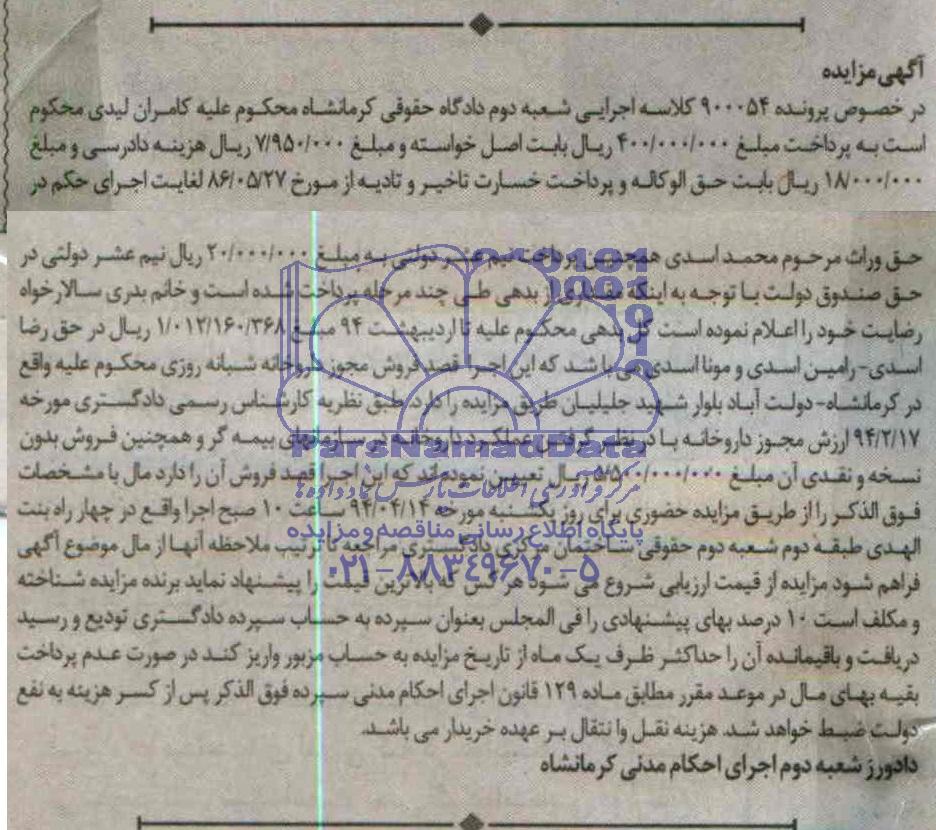 آگهی مزایده
در خصوص پرونده ۹۰۰۰۵۴ کلاسه اجرایی شعبه دوم دادگاه حقوقی کرمانشاه محکوم علیه کامران لیدی محکوم
است به پرداخت مبلغ ۴۰۰/۰۰۰/۰۰۰ ریال بابت اصل خواسته و مبلغ ۷/۹۵۰/۰۰۰ ریال هزینه دادرسی و مبلغ
۱۸/۰۰۰/۰۰۰ ریال بابت حق الوکاله و پرداخت خسارت تاخیر و تادیه از مورخ ۸۶/۰۵/۲۷ لغایت اجرای حکم در
حق وراث مرحوم محمد اسدی همچنین پرداخت نیم عشر دولتی به مبلغ ۲۰/۰۰۰/۰۰۰ ریال نیم عشر دولتی در
حق صندوق دولت با توجه به اینکه مقداری از بدهی طی چند مرحله پرداخت شده است و خانم بدری سالارخواه
رضایت خود را اعلام نموده است کل بدهی محکوم علیه تا اردیبهشت ۹۴ مبلغ ۱/۰۱۲/۱۶۰/۳۶۸ ریال در حق رضا
اسدی- رامین اسدی و مونا اسدی می باشد که این اجرا قصد فروش مجوز داروخانه شبانه روزی محکوم علیه واقع
در کرمانشاه- دولت آباد بلوار شهید جلیلیان طریق مزایده را دارد. طبق نظریه کارشناس رسمی دادگستری مورخه
۹۴/۲/۱۷ ارزش مجوز داروخانه با در نظر گرفتن عملکرد داروخانه در سازمانهای بیمه گر و همچنین فروش بدون
نسخه و نقدی آن مبلغ ریال تعیین نموده‌اند که این اجرا قصد فروش آن را دارد مال با مشخصات
فوق الذکر را از طریق مزایده حضوری برای روز یکشنبه مورخه ۹۴/۰۴/۱۴ ساعت ۱۰ صبح اجرا واقع در چهار راه بنت
الهدی طبقه دوم شعبه دوم حقوقی ساختمان مرکزی دادگستری مراجعه تا ترتیب ملاحظه آنها از مال موضوع آگهی
فراهم شود مزایده از قیمت ارزیابی شروع می شود هر کس که بالاترین قیمت را پیشنهاد نماید برنده مزایده شناخته
و مکلف است ۱۰ درصد بهای پیشنهادی را فی المجلس بعنوان سپرده به حساب سپرده دادگستری تودیع و رسید
دریافت و باقیمانده آن را حداکثر ظرف یک ماه از تاریخ مزایده به حساب مزبور واریز کند در صورت عدم پرداخت
بقیه بهای مال در موعد مقرر مطابق ماده ۱۲۹ قانون اجرای احکام مدنی سپرده فوق الذکر پس از کسر هزینه به نفع
دولت ضبط خواهد شد. هزینه نقل وا نتقال بر عهده خریدار می باشد.
دادورز شعبه دوم اجرای احکام مدنی کرمانشاه
ParsNamadData
مرکز فرآوری اطلاعات پارس نماد داده ها
پایگاه اطلاع رسانی مناقصه و مزایده
۰۲۱-۸۸۳۴۹۶۷۰-۵